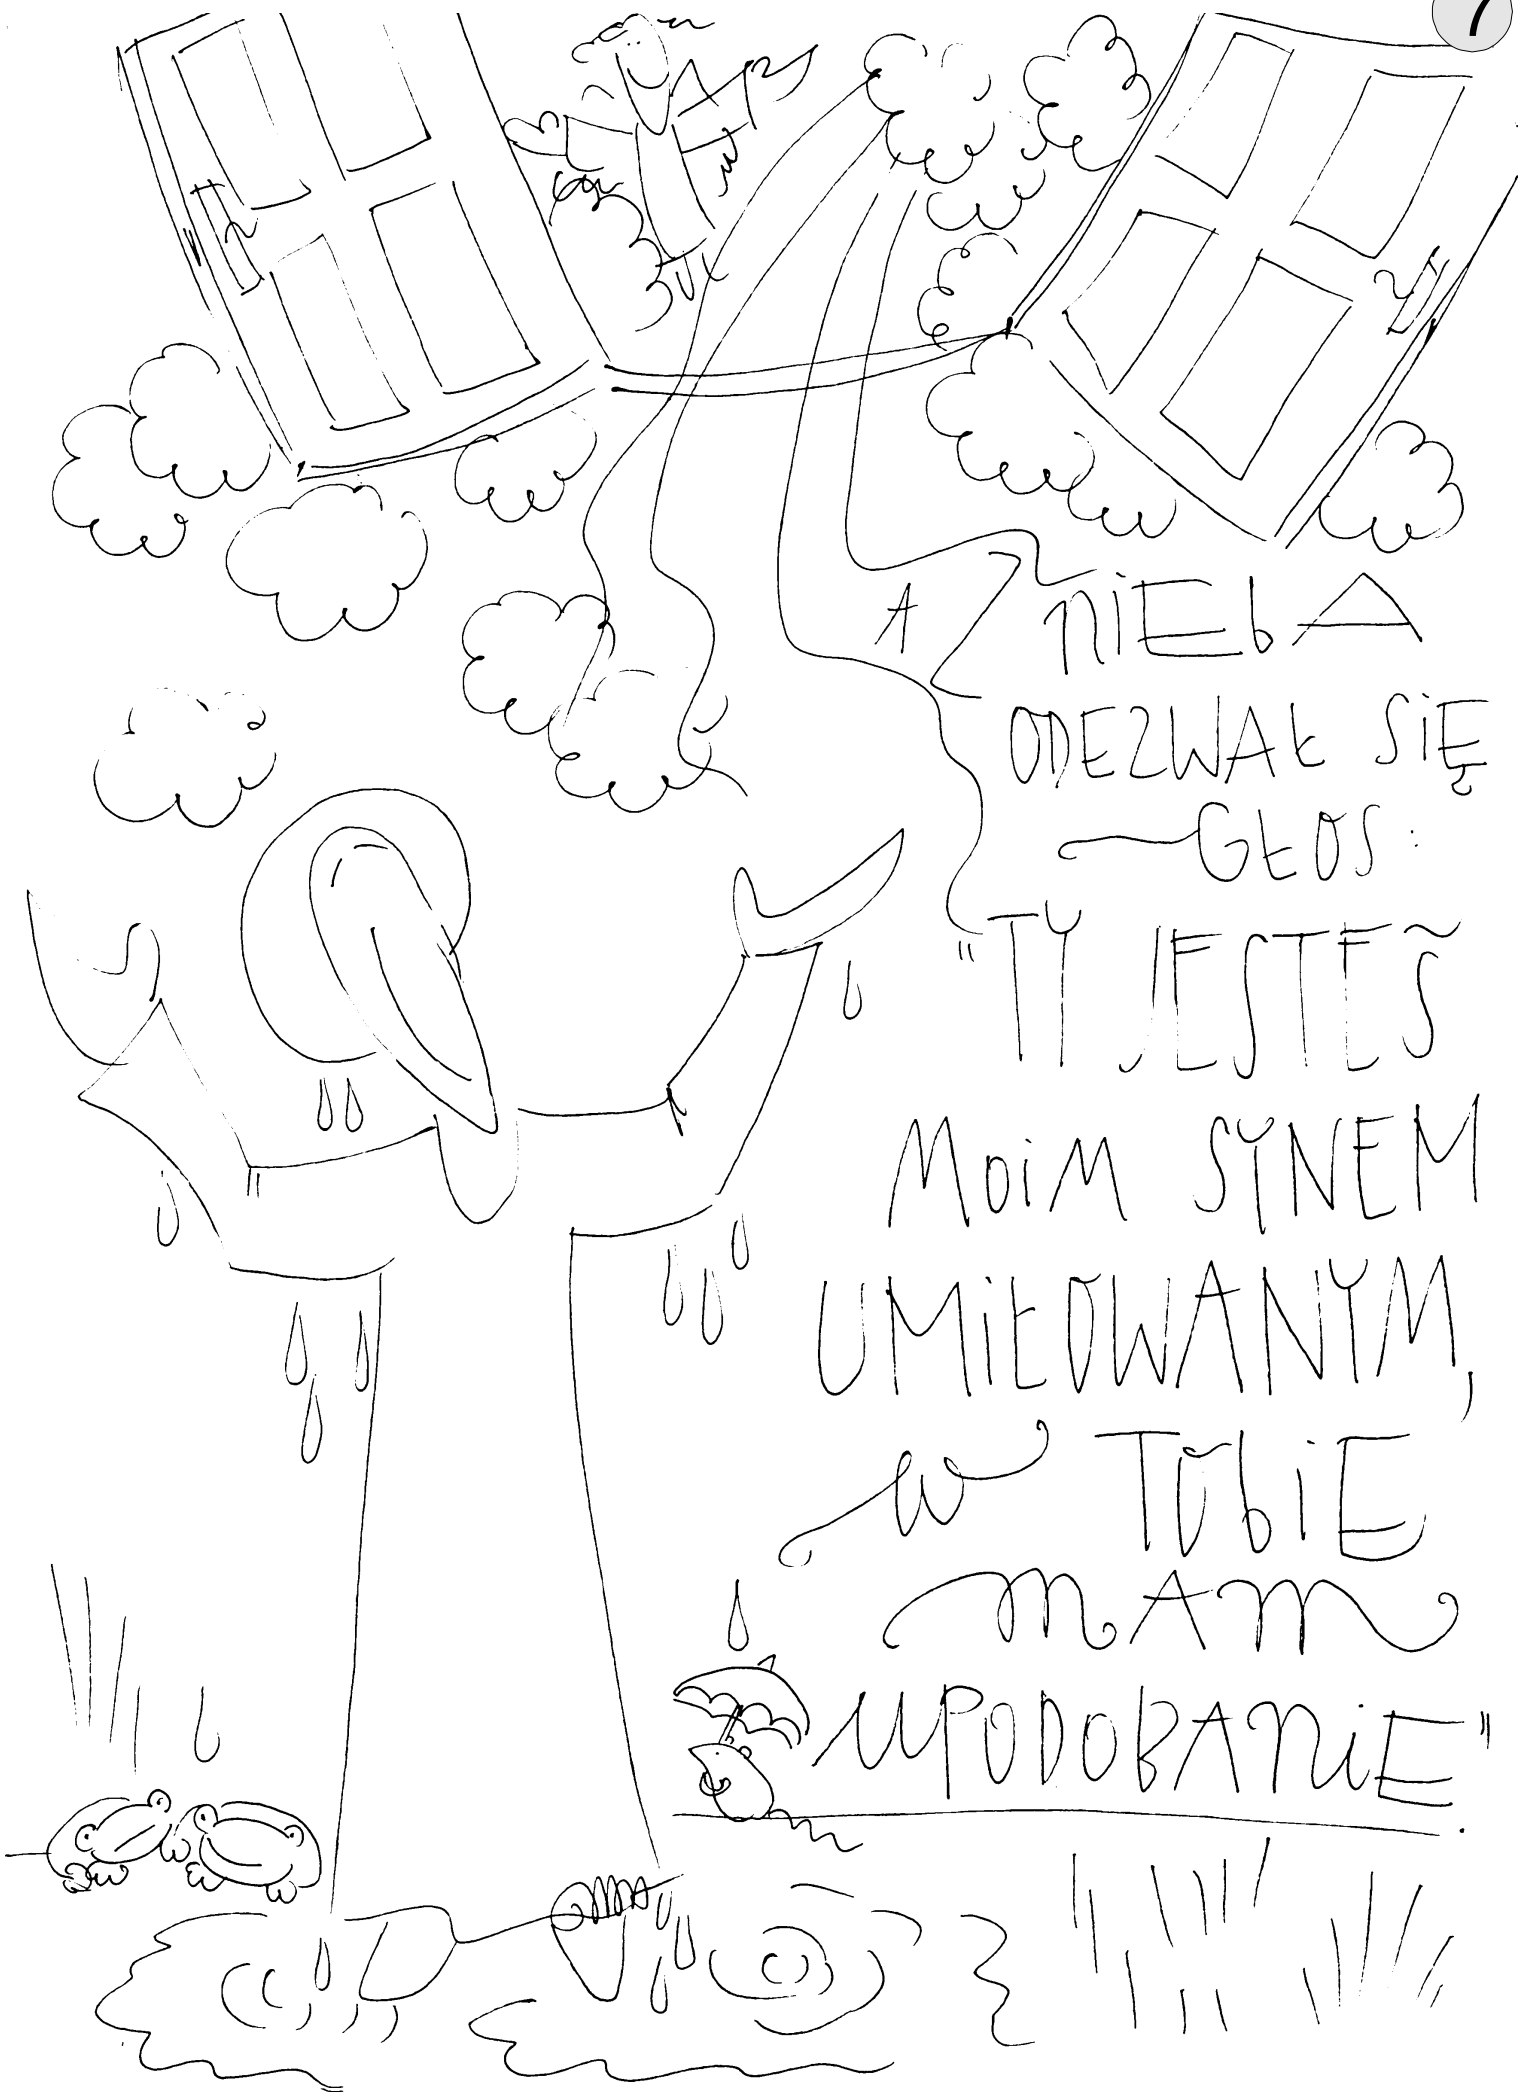 7
A Z NIEBA
ODEZWAŁ SIĘ
GŁOS:
"TY JESTEŚ
MOIM SYNEM
UMIŁOWANYM,
W TOBIE
MAM
UPODOBANIE".